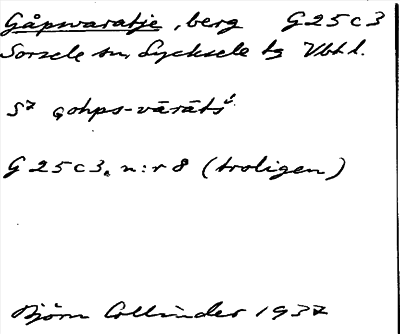 Gåpsvaratje, berg G 25 c 3
Sorsele sn, Lycksele tg Vbtl.
gohps-vārātś
G 25 c 3, n:r 8 (troligen)
Björn Collinder 1937